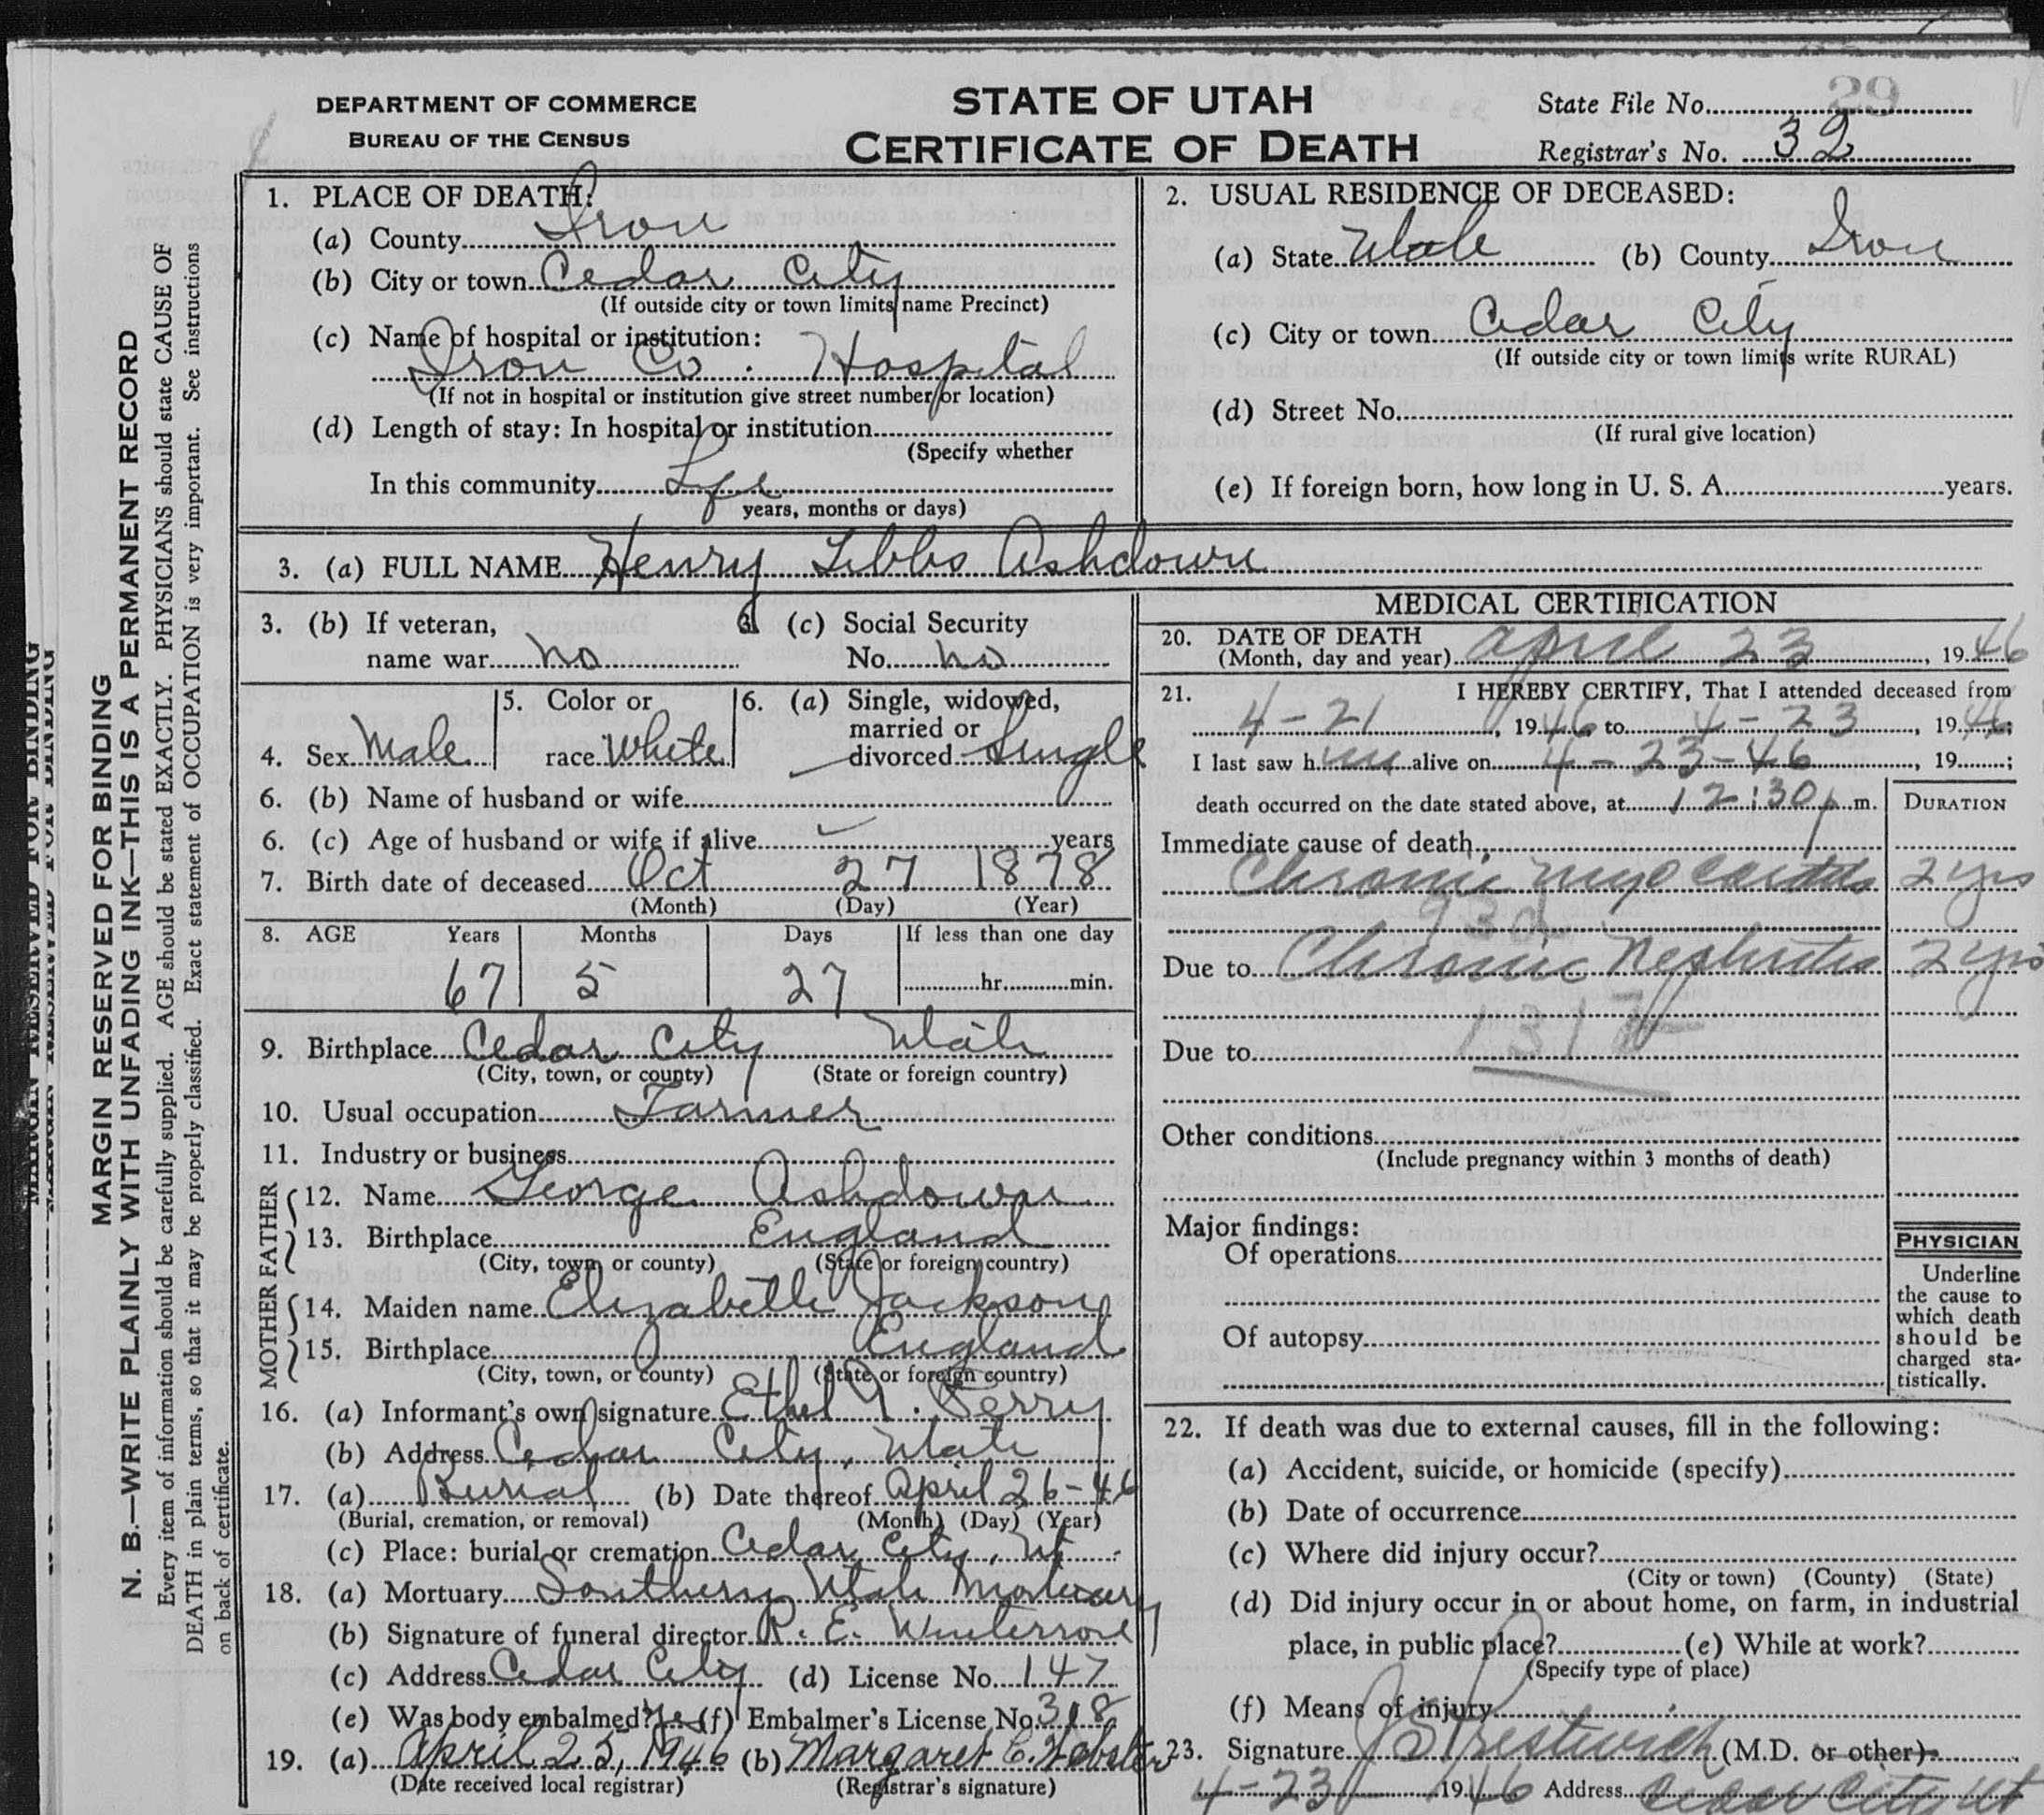 DEPARTMENT OF COMMERCE
BUREAU OF THE CENSUS
STATE OF UTAH
CERTIFICATE OF DEATH
State File No. 29
Registrar's No. 32
MARGIN RESERVED FOR BINDING
N. B.—WRITE PLAINLY WITH UNFADING INK—THIS IS A PERMANENT RECORD
Every item of information should be carefully supplied. AGE should be stated EXACTLY. PHYSICIANS should state CAUSE OF
DEATH in plain terms, so that it may be properly classified. Exact statement of OCCUPATION is very important. See instructions
on back of certificate.
1. PLACE OF DEATH:
(a) County Iron
(b) City or town Cedar City
(If outside city or town limits name Precinct)
(c) Name of hospital or institution:
Iron Co. Hospital
(If not in hospital or institution give street number or location)
(d) Length of stay: In hospital or institution
(Specify whether
In this community Life
years, months or days)
2. USUAL RESIDENCE OF DECEASED:
(a) State Utah (b) County Iron
(c) City or town Cedar City
(If outside city or town limits write RURAL)
(d) Street No.
(If rural give location)
(e) If foreign born, how long in U. S. A. years.
3. (a) FULL NAME Henry Libbs Ashdown
3. (b) If veteran, (c) Social Security
name war no No. no
4. Sex Male 5. Color or race White 6. (a) Single, widowed, married or divorced Single
6. (b) Name of husband or wife
6. (c) Age of husband or wife if alive years
7. Birth date of deceased Oct 27 1878
(Month) (Day) (Year)
8. AGE Years Months Days If less than one day
67 5 27 hr. min.
9. Birthplace Cedar City Utah
(City, town, or county) (State or foreign country)
10. Usual occupation Farmer
11. Industry or business
FATHER
12. Name George Ashdown
13. Birthplace England
(City, town, or county) (State or foreign country)
MOTHER
14. Maiden name Elizabeth Jackson
15. Birthplace England
(City, town, or county) (State or foreign country)
16. (a) Informant's own signature Ethel J. Perry
(b) Address Cedar City, Utah
17. (a) Burial (b) Date thereof April 26-46
(Burial, cremation, or removal) (Month) (Day) (Year)
(c) Place: burial or cremation Cedar City, Ut
18. (a) Mortuary Southern Utah Mortuary
(b) Signature of funeral director R. E. Winterrose
(c) Address Cedar City (d) License No. 147
(e) Was body embalmed? Yes (f) Embalmer's License No. 318
19. (a) April 25, 1946 (b) Margaret C. Webster
(Date received local registrar) (Registrar's signature)
MEDICAL CERTIFICATION
20. DATE OF DEATH
(Month, day and year) April 23, 1946
21. I HEREBY CERTIFY, That I attended deceased from
4-21, 1946 to 4-23, 1946;
I last saw him alive on 4-23-46, 19 ;
death occurred on the date stated above, at 12:30 p m. DURATION
Immediate cause of death
Chronic myocarditis 2 yrs
93d
Due to Chronic Nephritis 2 yrs
Due to 131
Other conditions
(Include pregnancy within 3 months of death)
Major findings:
Of operations
Of autopsy
PHYSICIAN
Underline
the cause to
which death
should be
charged sta-
tistically.
22. If death was due to external causes, fill in the following:
(a) Accident, suicide, or homicide (specify)
(b) Date of occurrence
(c) Where did injury occur?
(City or town) (County) (State)
(d) Did injury occur in or about home, on farm, in industrial
place, in public place? (e) While at work?
(Specify type of place)
(f) Means of injury
23. Signature J S Prestwich (M.D. or other)
4-23 1946 Address Cedar City Ut